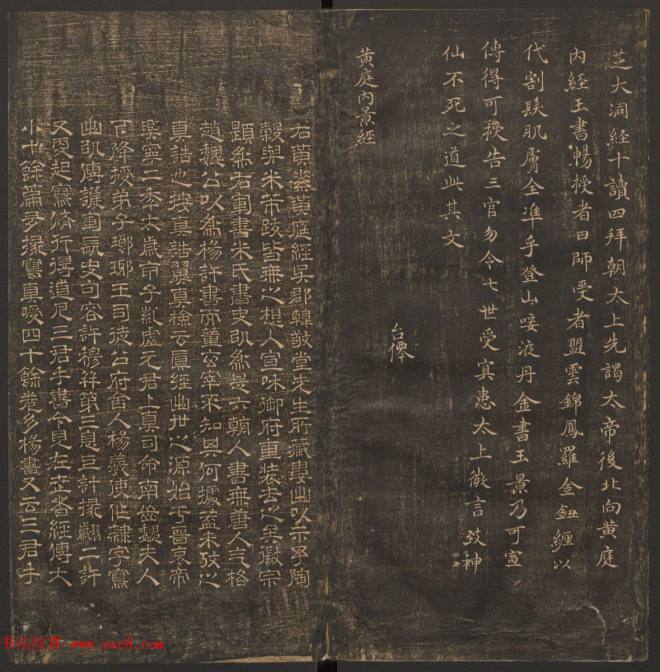 芝大洞經十讀四拜朝太上先謁太帝後北向黃庭
內經玉書暢授者曰師受者盟雲錦鳳羅金鈕纏以
代割髮肌膚全準乎登山唼液丹金書玉景乃可宣
傳得可授告三官勿令七世受冥患太上微言致神
仙不死之道此其文
黃庭內景經
右黃素黃庭經吳郡韓敬堂先生所藏婁出以示予陶
穀與米芾跋皆無之想入宣咊御府重裝去之矣徽宗
題為右軍書米氏書史以為是六朝人書無唐人气格
趙魏公以為楊許書而董公宰不知其何據蓋未攷之
真誥也按真誥翼真檢云真經出世之源始于晉哀帝
興寧二秊太歲甲子紫虛元君上真司命南嶽夫人
下降授弟子瑯琊王司徒公府舍人楊羲使作隸字寫
出以傳護軍長史句容許穆并第三息上計掾翽二許
又更起寫脩行得道凡三君手書今見在世者經傳大
小十餘篇多掾寫真唼四十餘卷多楊書又云三君手
书法欣赏 www.yac8.com